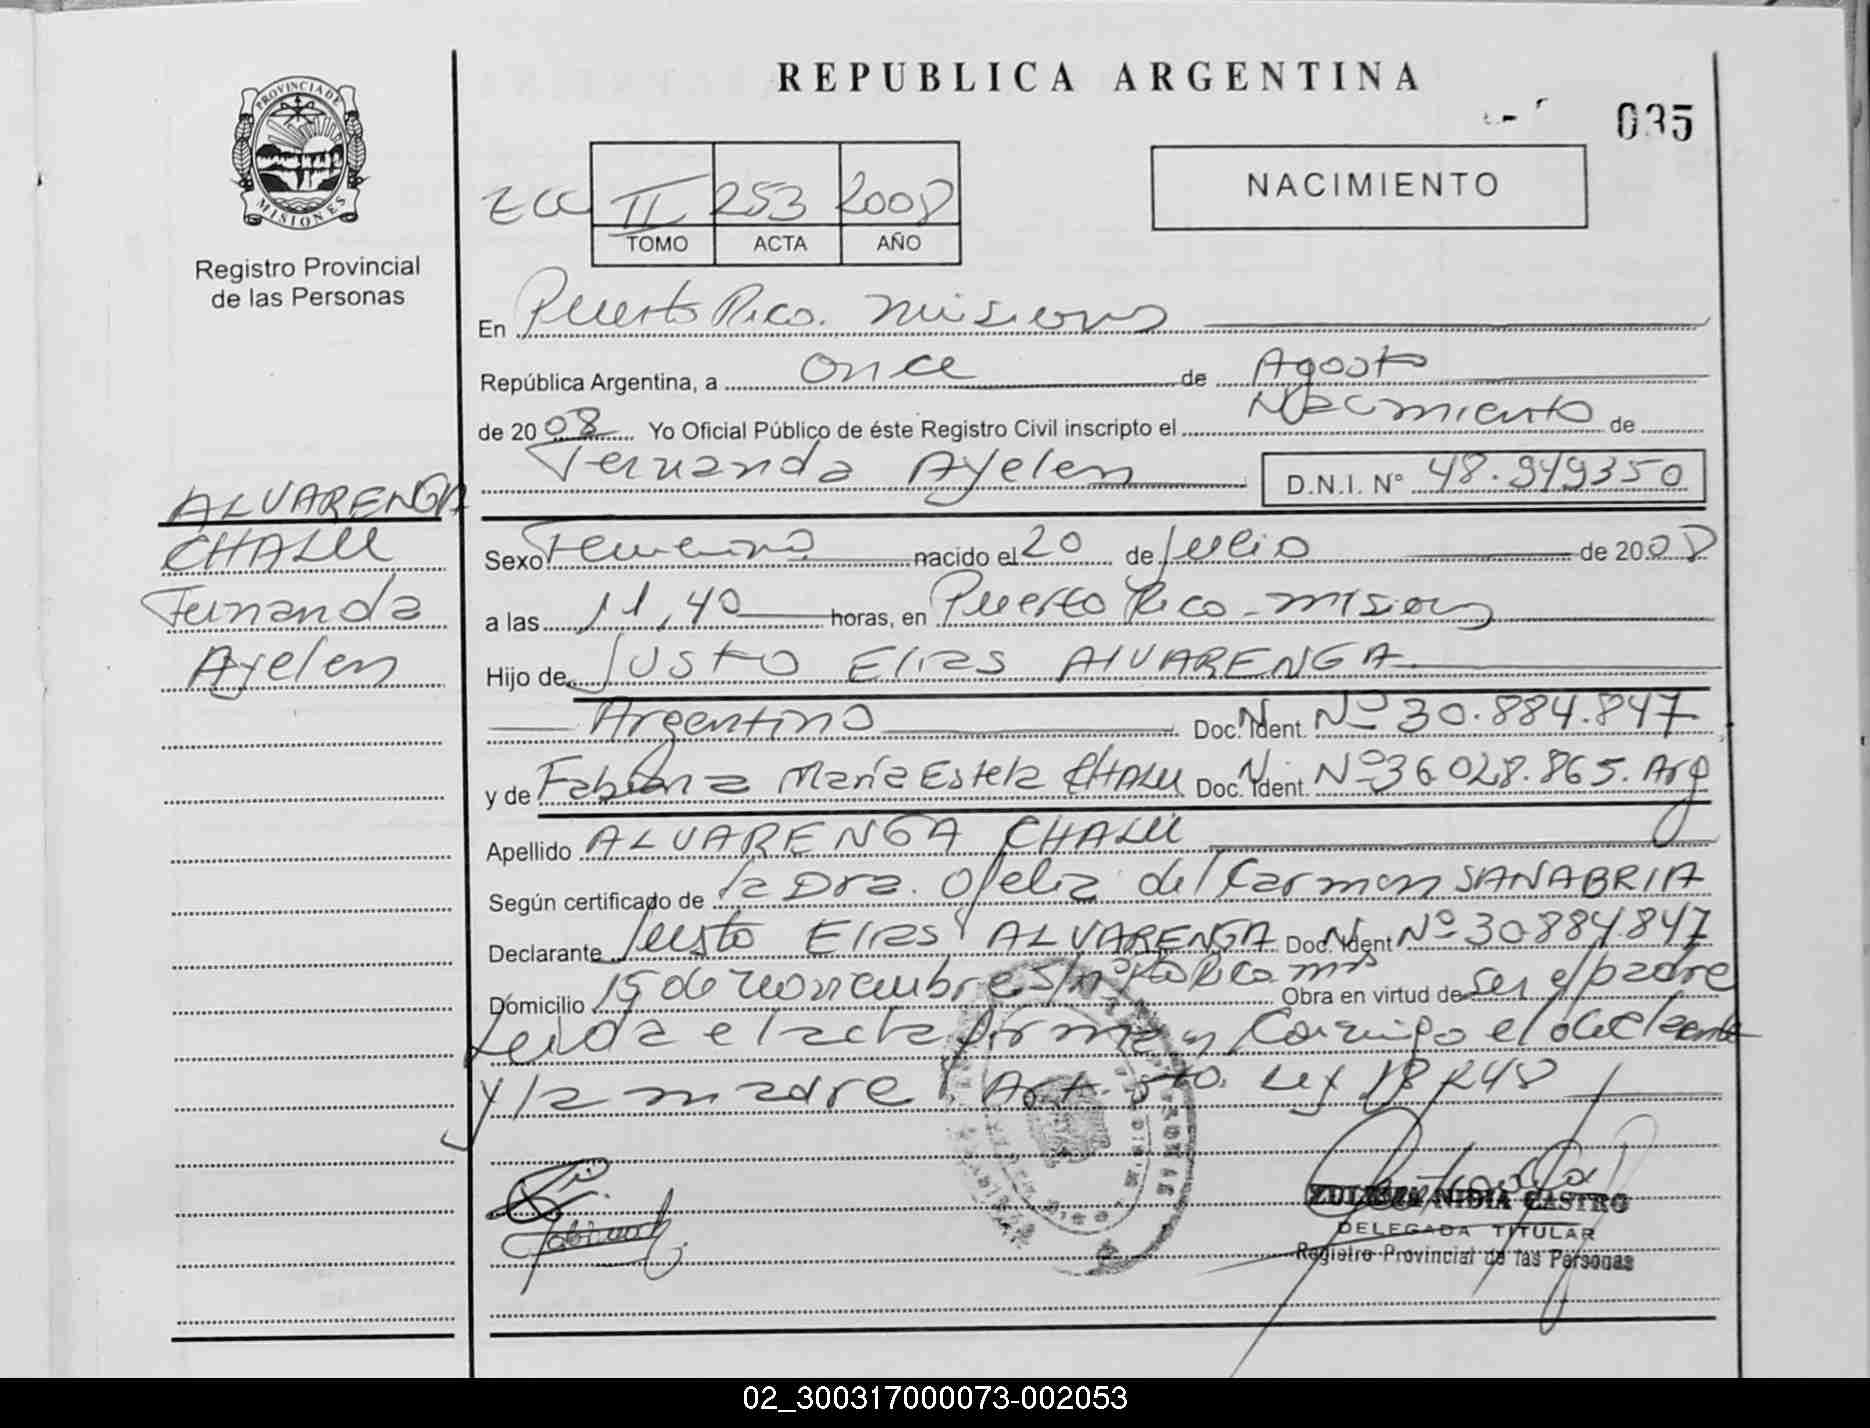 REPUBLICA ARGENTINA
035
PROVINCIA DE MISIONES
Registro Provincial
de las Personas
II 253 2008
TOMO ACTA AÑO
NACIMIENTO
En Puerto Rico. Misiones
República Argentina, a Once de Agosto
de 2008 Yo Oficial Público de éste Registro Civil inscripto el Nacimiento de
Fernanda Ayelen D.N.I. N° 48.949350
ALVARENGA
CHALU
Fernanda
Ayelen
Sexo Femenino nacido el 20 de Julio de 2008
a las 11,40 horas, en Puerto Rico - misiones
Hijo de Justo Elias ALVARENGA
Argentino Doc. N. Ident. Nº 30.884.847
y de Fabiana María Estela CHALU Doc. N. Ident. Nº 36028.865. Arg
Apellido ALVARENGA CHALU
Según certificado de la Dra. Ofelia del Carmen SANABRIA
Declarante Justo Elias ALVARENGA Doc. N. Ident Nº 30884847
Domicilio 15 de noviembre S/nº Pto Rico mns Obra en virtud de Ser el padre
Leida el acta firman Conmigo el declarante
y la madre Art. 5to. Ley 18248
ZULEMA NIDIA CASTRO
DELEGADA TITULAR
Registro Provincial de las Personas
02_300317000073-002053